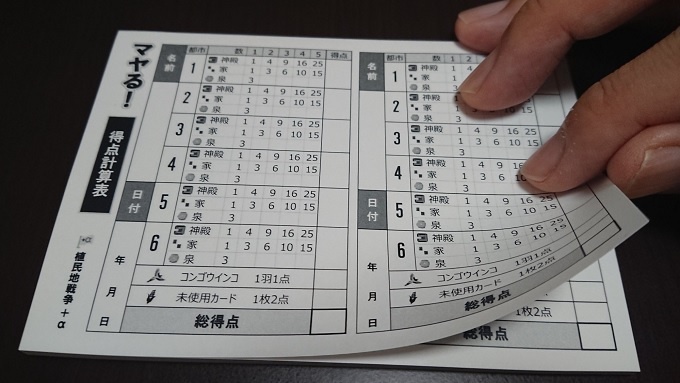 マヤる!
得点計算表
植民地戦争+α
名前
日付
年 月 日
都市 数 1 2 3 4 5 得点
1 神殿 1 4 9 16 25
家 1 3 6 10 15
泉 3
2 神殿 1 4 9 16 25
家 1 3 6 10 15
泉 3
3 神殿 1 4 9 16 25
家 1 3 6 10 15
泉 3
4 神殿 1 4 9 16 25
家 1 3 6 10 15
泉 3
5 神殿 1 4 9 16 25
家 1 3 6 10 15
泉 3
6 神殿 1 4 9 16 25
家 1 3 6 10 15
泉 3
コンゴウインコ 1羽1点
未使用カード 1枚2点
総得点
名前
日付
年 月 日
都市 数 1 2
1 神殿 1 4
家 1 3
泉 3
2 神殿 1
家 1 3 6 10 15
泉 3
3 神殿 1 4 9 16 25
家 1 3 6 10 15
泉 3
4 神殿 1 4 9 16
家 1 3 6 10
泉 3
5 神殿 1 4 9 16 25
家 1 3 6 10 15
泉 3
6 神殿 1 4 9 16 25
家 1 3 6 10 15
泉 3
コンゴウインコ 1羽1点
未使用カード 1枚2点
総得点
1枚2点
総得点